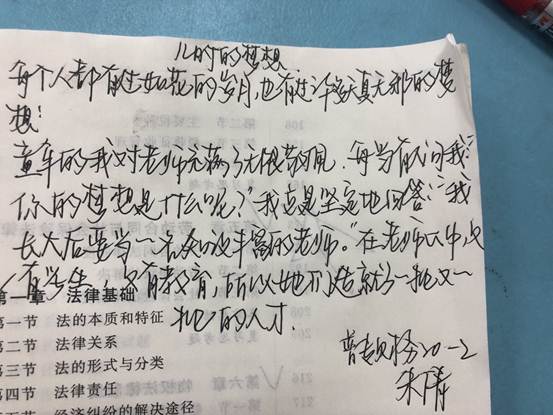 儿时的梦想
每个人都有过如花的岁月,也有过许多天真无邪的梦
想:
童年的我对老师充满了无限敬佩.每当有人问我:“
你的梦想是什么呢?”我总是坚定地回答:“我
长大后要当一名知识丰富的老师。”在老师心中,只
有学生,只有教育,所以她们造就了一批又一
批的人才.
普专财务20-2
朱倩
第一章 法律基础
第一节 法的本质和特征
第二节 法律关系
第三节 法的形式与分类
第四节 法律责任
第五节 经济纠纷的解决途径